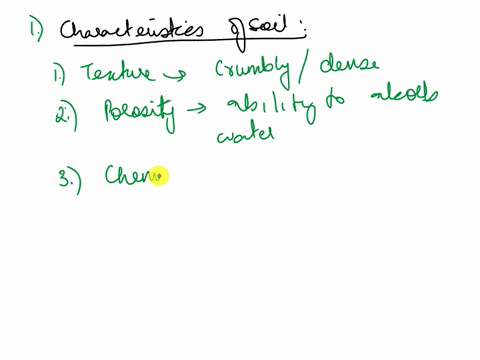 1.) Characteristics of soil:
1.) Texture → Crumbly / dense
2.) Porosity → ability to
water
3.) Chem